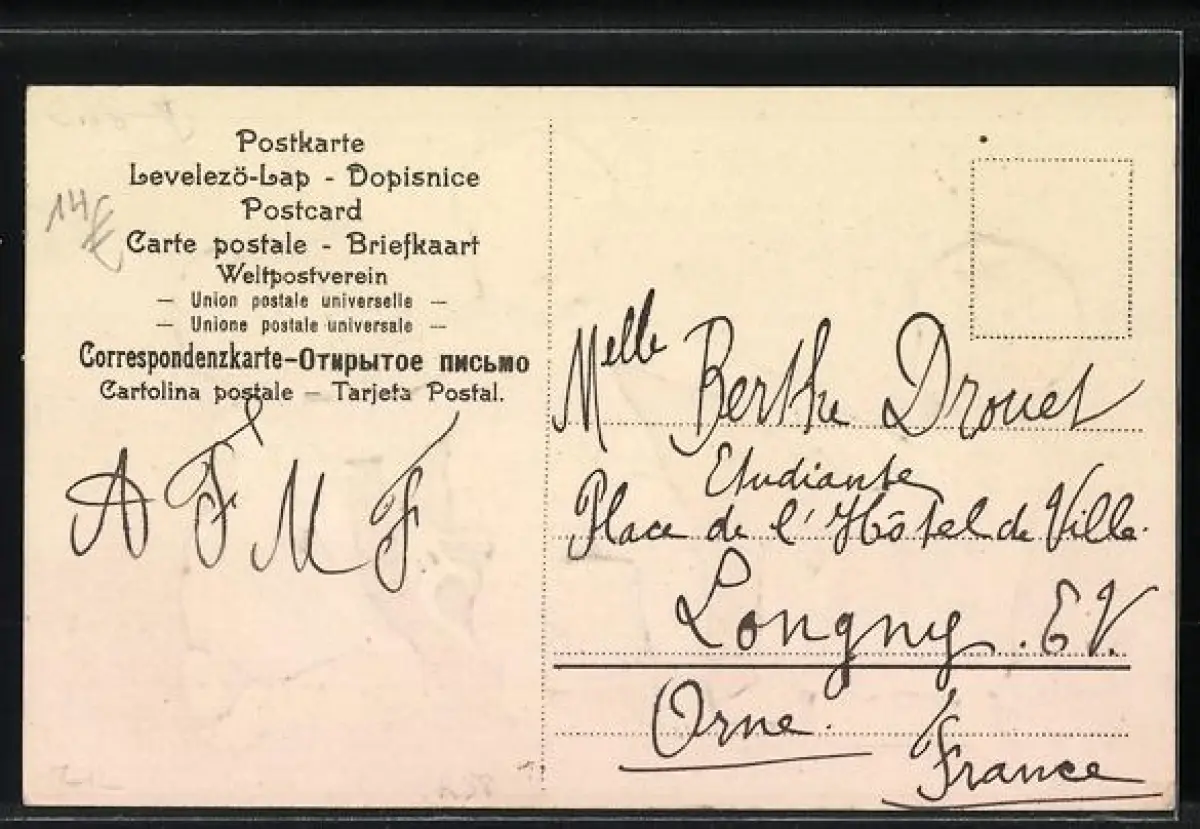 Postkarte
Levelezö-Lap - Dopisnice
Postcard
Carte postale - Briefkaart
Weltpostverein
— Union postale universelle —
— Unione postale universale —
Correspondenzkarte-Открытое письмо
Cartolina postale — Tarjeta Postal.
14
A F M F
Melle Berthe Drouet
Etudiante
Place de l'Hôtel de Ville.
Longny. E.V.
Orne.
France